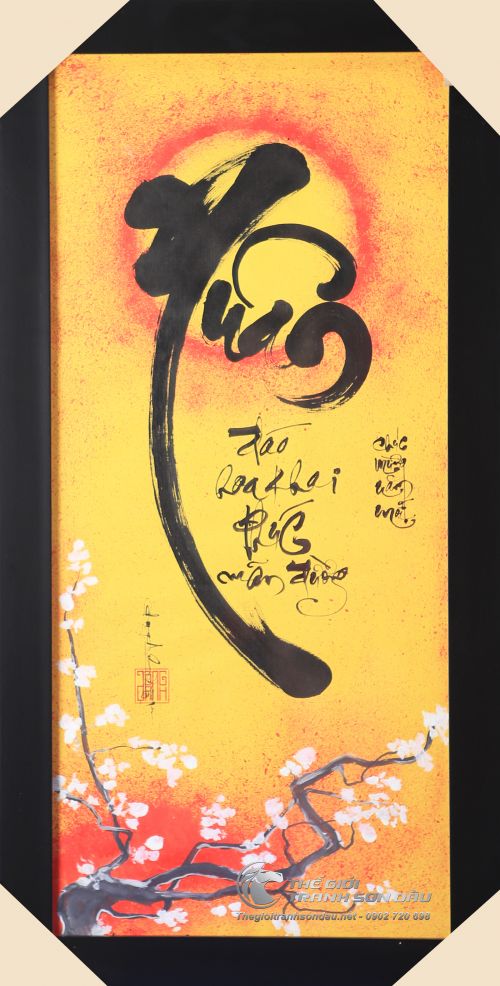 Xuân
đào
hoa khai
phúc
mãn đường
chúc
mừng
năm
mới
THẾ GIỚI
TRANH SƠN DẦU
Thegioitranhsondau.net - 0902 720 698